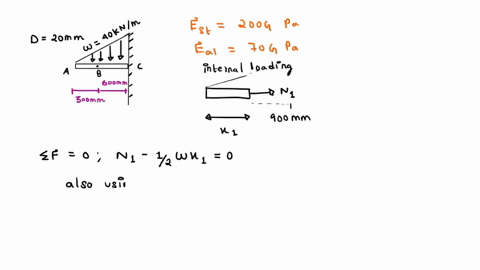 D = 20mm
w = 40kN/m
A
B
C
600mm
300mm
Est = 200G Pa
Eal = 70G Pa
internal loading
N1
900mm
x1
ΣF = 0 ; N1 - 1/2 wx1 = 0
also usii